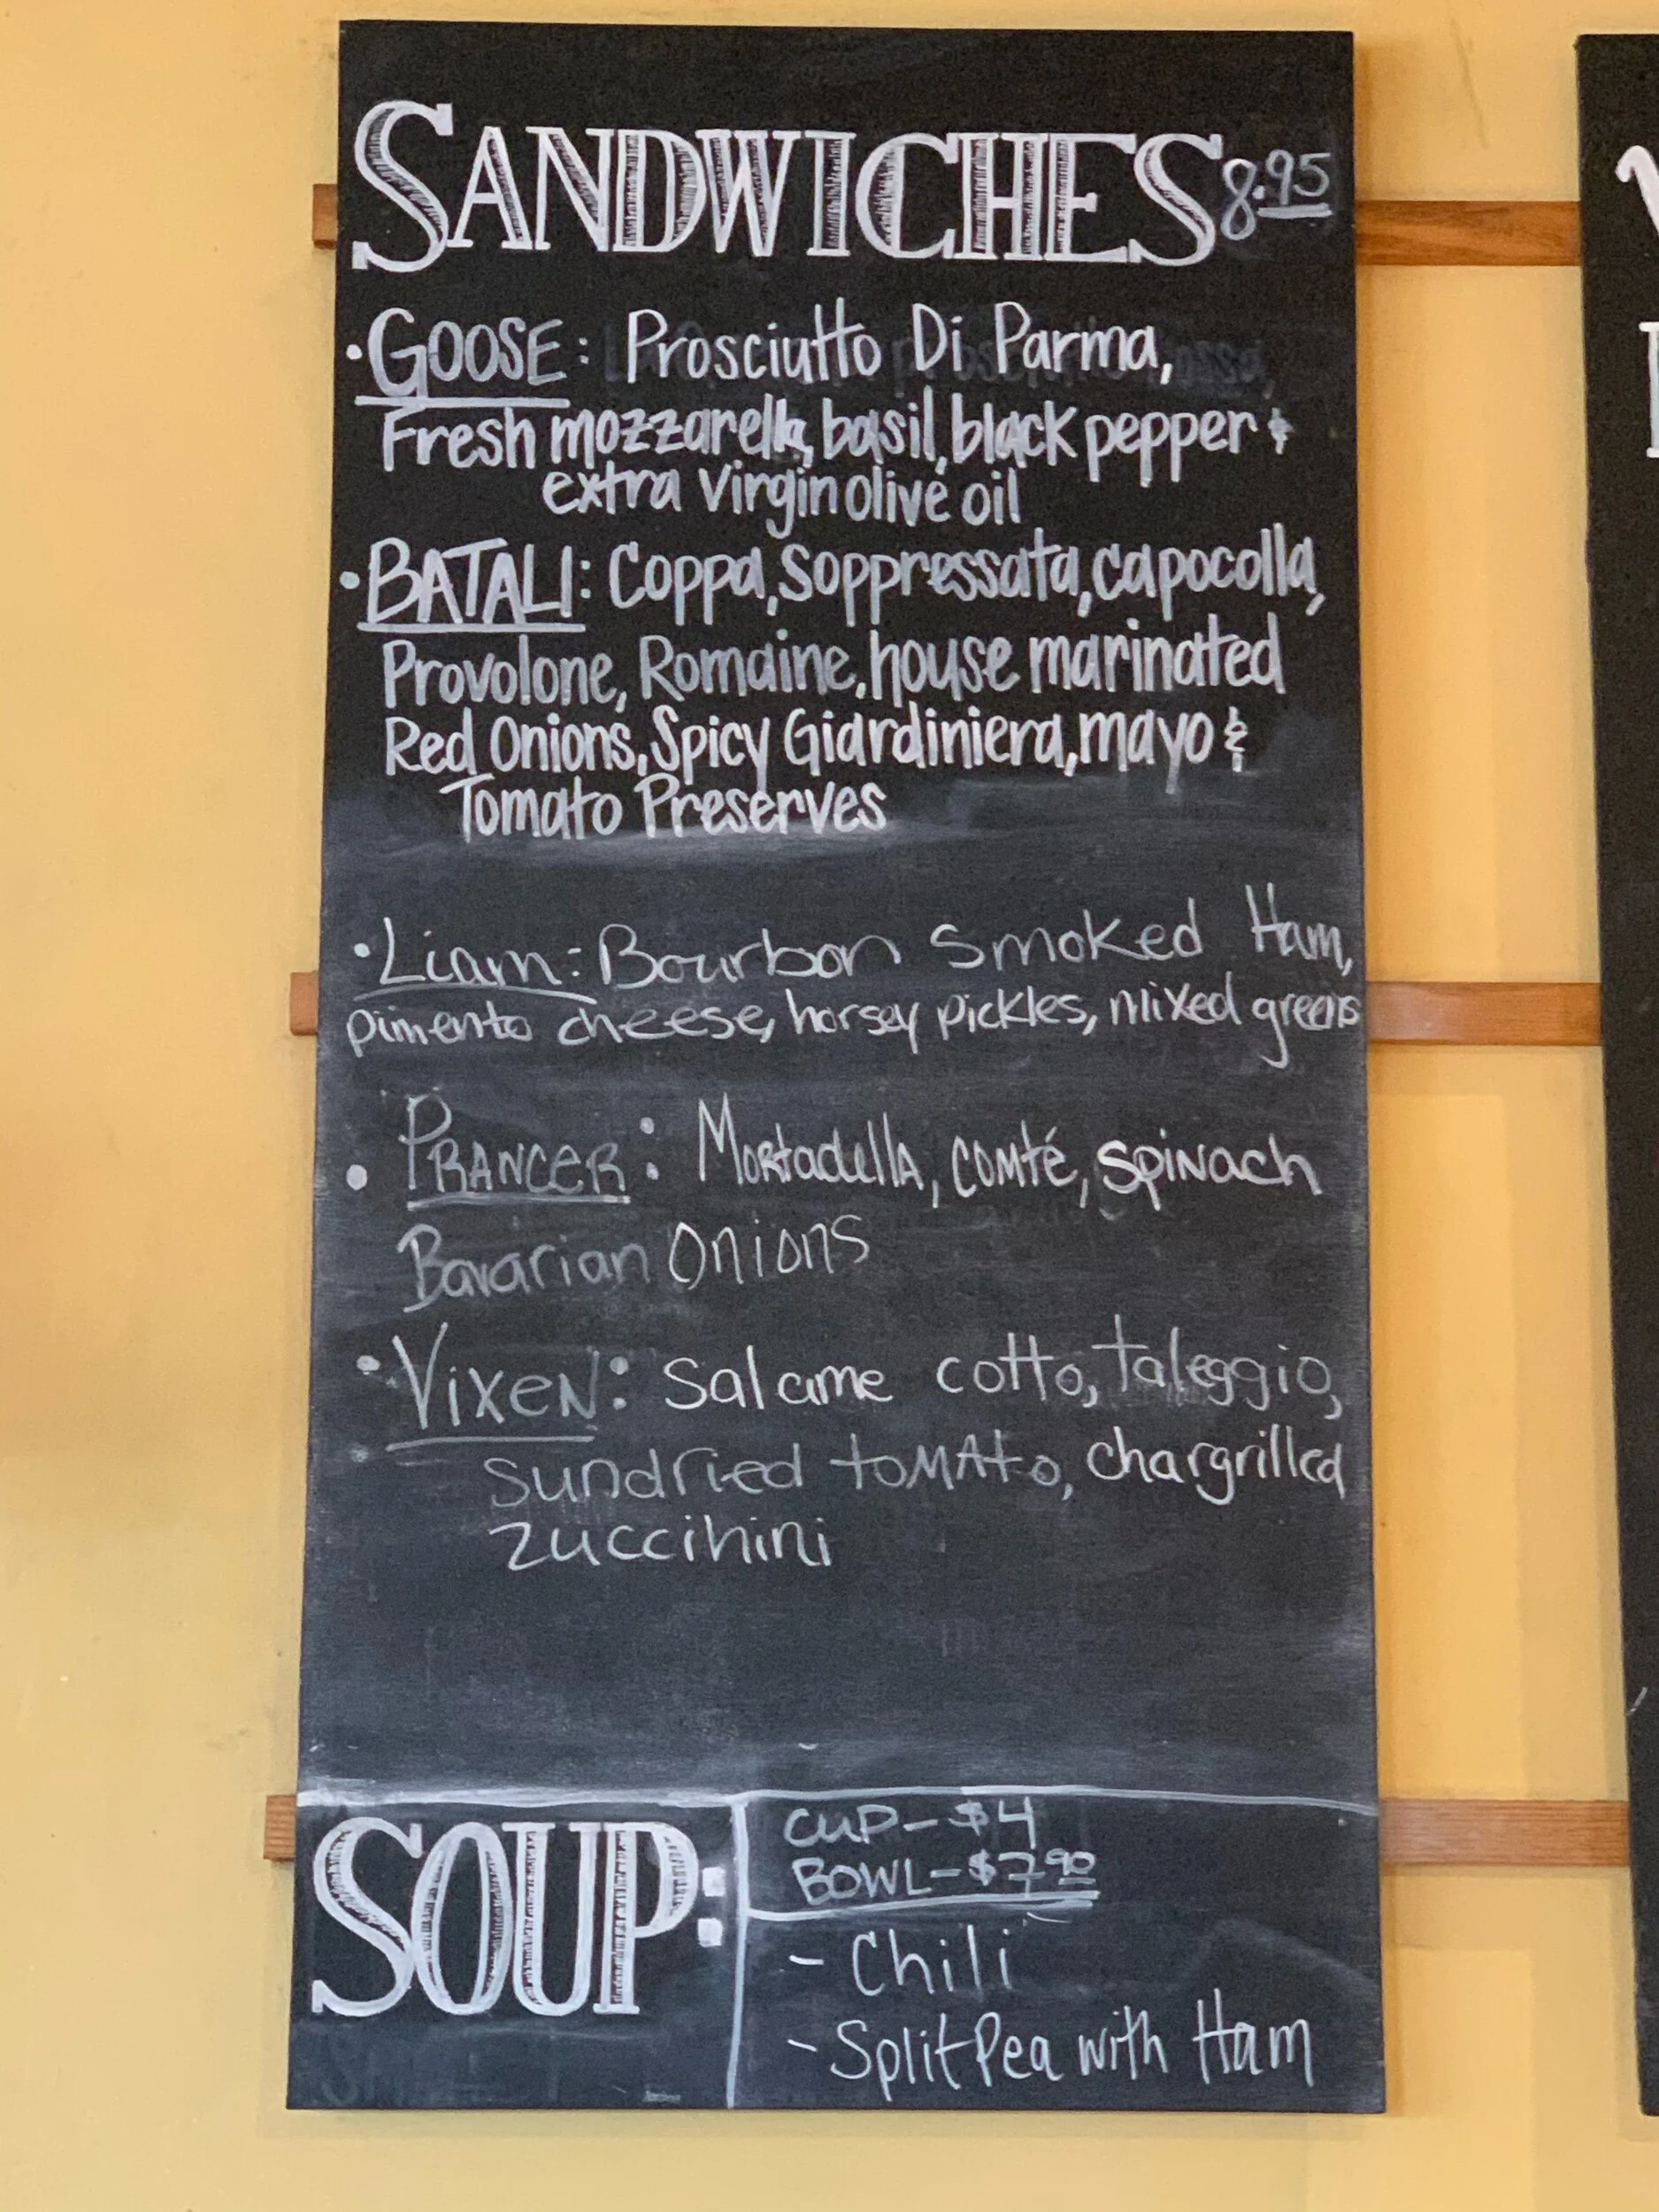 SANDWICHES 8.95
· GOOSE: Prosciutto Di Parma,
Fresh mozzarella, basil, black pepper &
extra virgin olive oil
· BATALI: Coppa, Soppressata, capocolla,
Provolone, Romaine, house marinated
Red Onions, Spicy Giardiniera, mayo &
Tomato Preserves
· Liam: Bourbon smoked Ham,
pimento cheese, horsey pickles, mixed greens
· PRANCER: Mortadella, comté, spinach
Bavarian Onions
· Vixen: Salame cotto, taleggio,
sundried tomato, chargrilled
zuccihini
SOUP:
CUP - $4
BOWL - $7.90
- Chili
- Split Pea with Ham